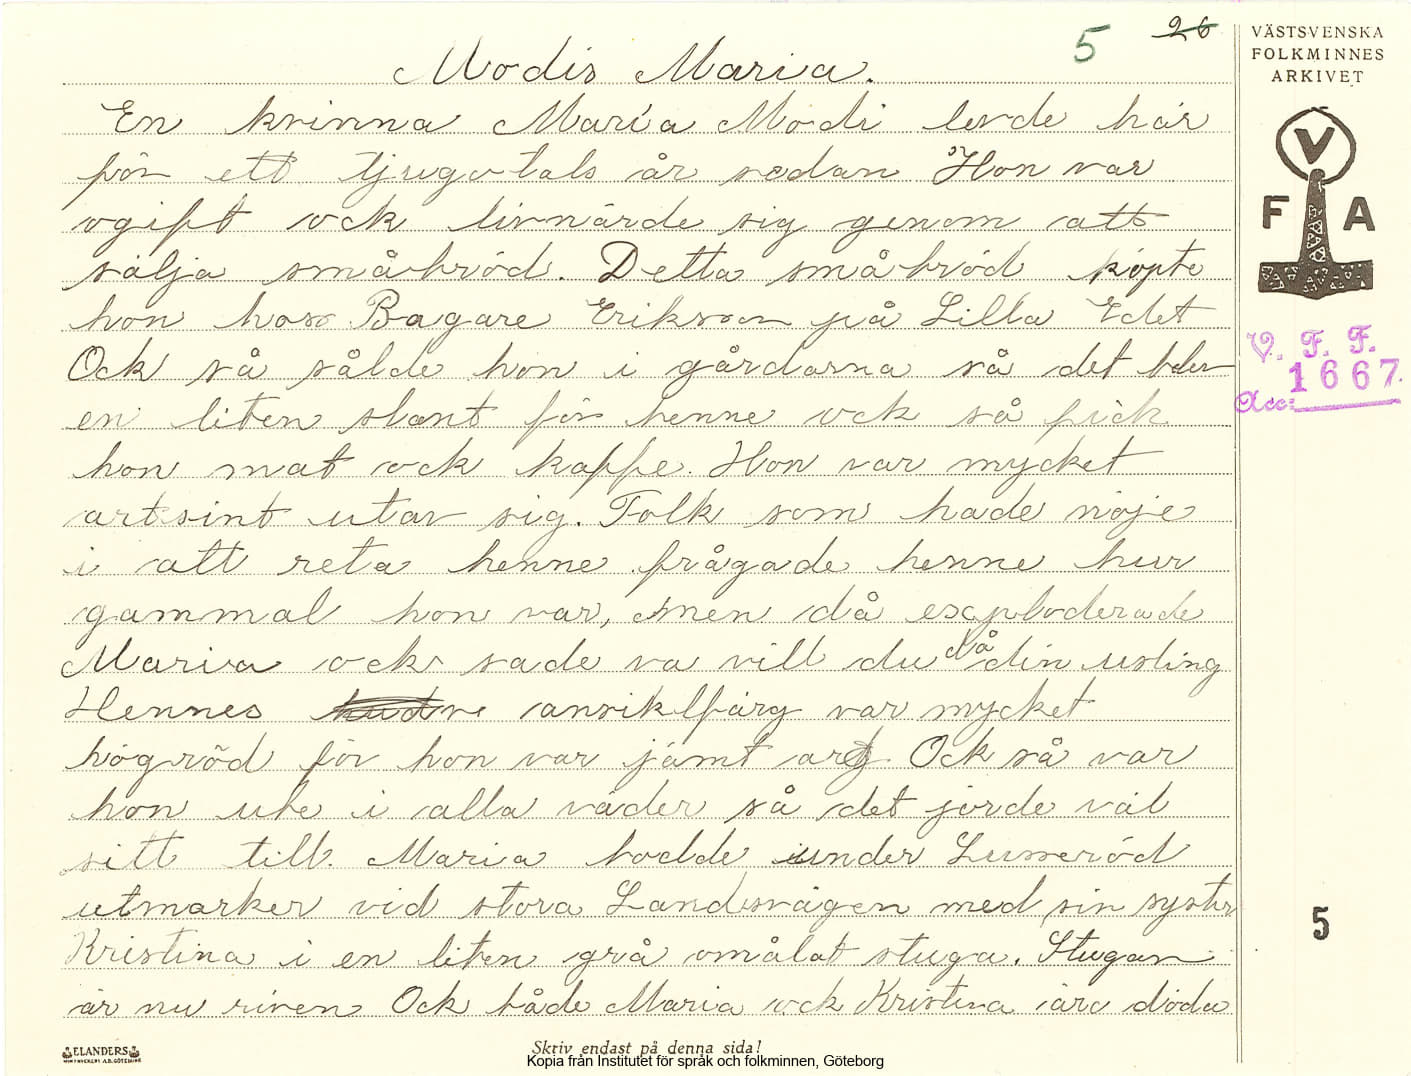 5 26
VÄSTSVENSKA
FOLKMINNES
ARKIVET
V
F A
V. F. F.
1667.
Acc:
Modis Maria.
En kvinna Maria Modi levde här
för ett tjugotals år sedan Hon var
ogift ock livnärde sig genom att
sälja småbröd. Detta småbröd köpte
hon hoss Bagare Erikson på Lilla Edet
Ock så sålde hon i gårdarna så det blev
en liten slant för henne ock så fick
hon mat ock kaffe. Hon var mycket
artsint utav sig. Folk som hade nöje
i att reta henne frågade henne hur
gammal hon var, men då exploderade
Maria ock sade va vill du då din usling
Hennes ansiktfärg var mycket
högröd för hon var jämt arg Ock så var
hon ute i alla väder så det jorde väl
sitt till. Maria bodde under Lunneröd
utmarker vid stora Landsvägen med sin syster
Kristina i en liten grå omålat stuga. Stugan
är nu riven Ock både Maria ock Kristina äro döda
5
ELANDERS
Skriv endast på denna sida!
Kopia från Institutet för språk och folkminnen, Göteborg